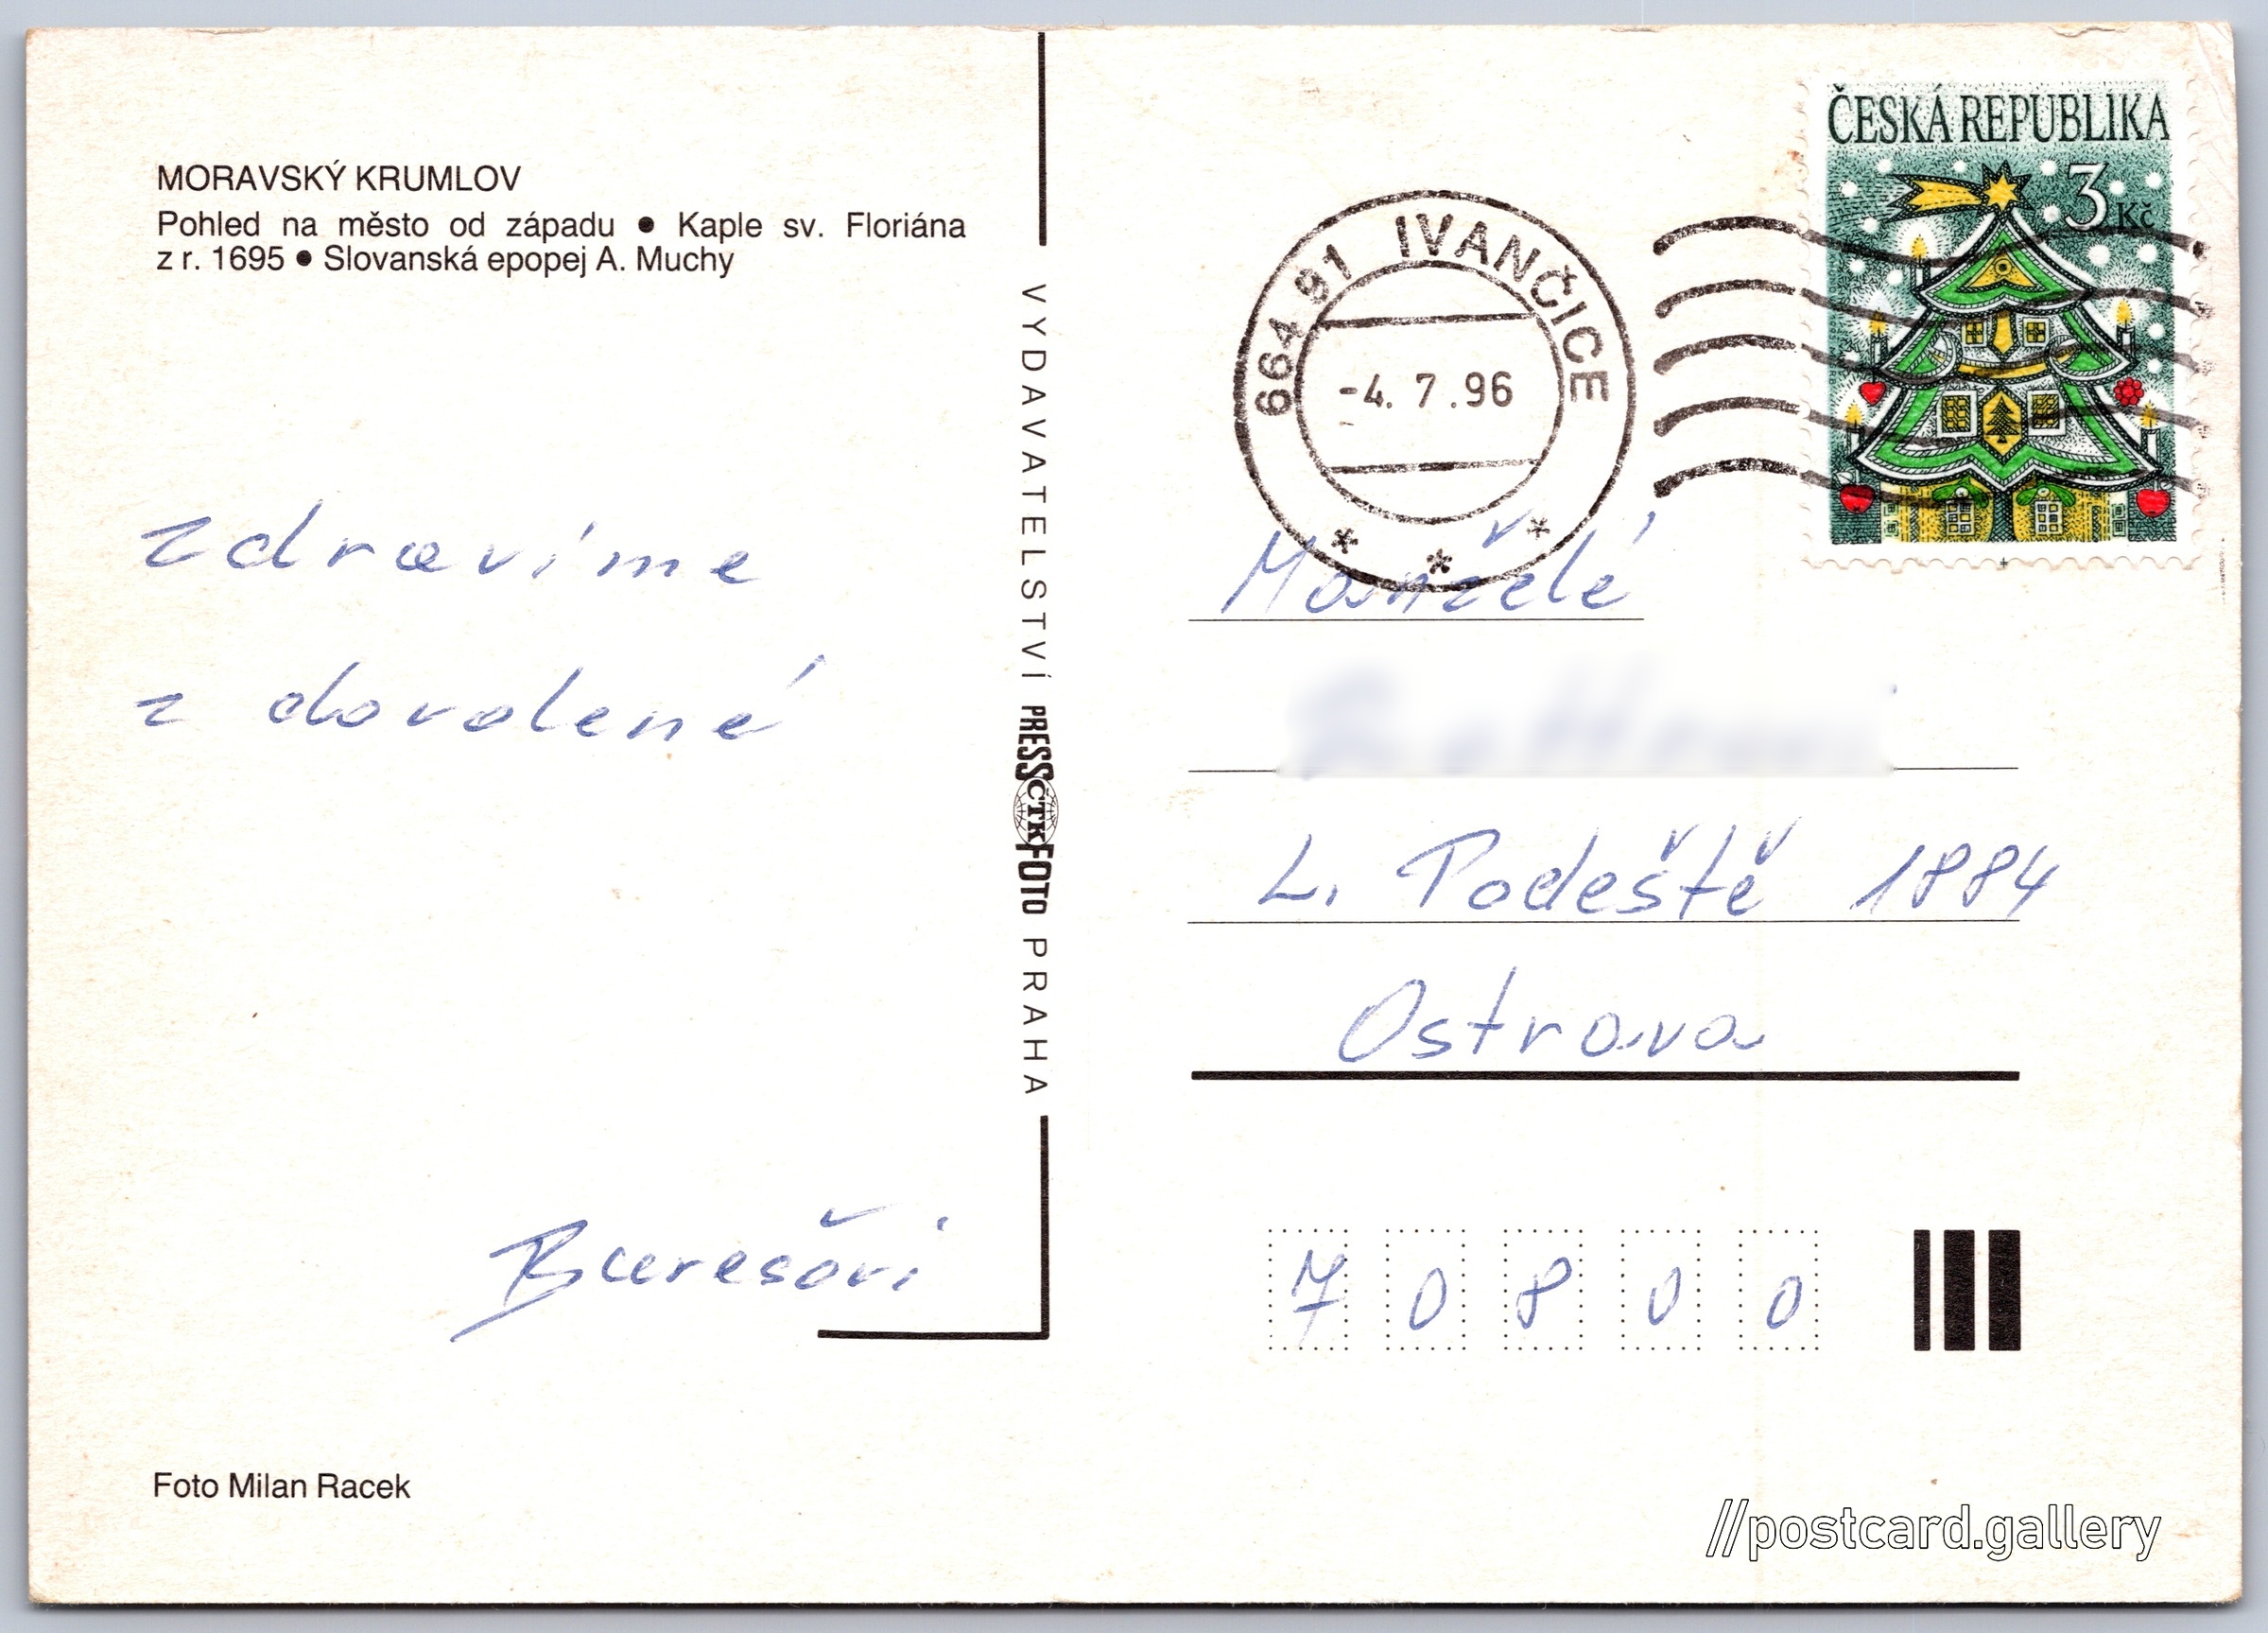 MORAVSKÝ KRUMLOV
Pohled na město od západu ● Kaple sv. Floriána
z r. 1695 ● Slovanská epopej A. Muchy
zdravíme
z dovolené
Burešovi
Foto Milan Racek
VYDAVATELSTVÍ PRESSFOTO PRAHA
ČTK
664 91 IVANČICE
-4. 7. 96
* * *
ČESKÁ REPUBLIKA
3 Kč
Manželé
L. Podéště 1884
Ostrava
7 0 8 0 0
//postcard.gallery